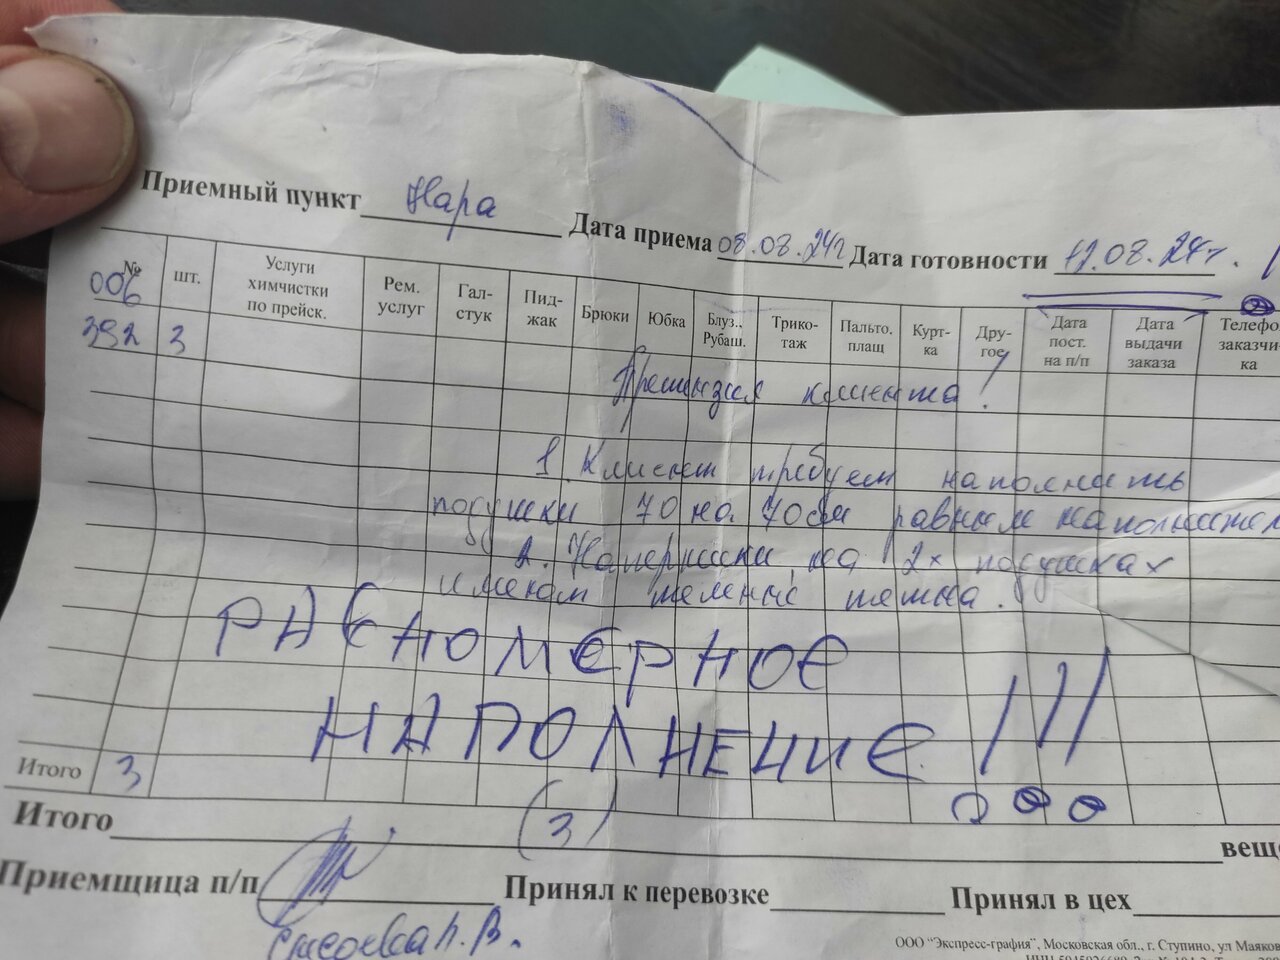 Приемный пункт Нара Дата приема 08.08.24г Дата готовности 12.08.24г.
№ шт. Услуги химчистки по прейск. Рем. услуг Гал-стук Пид-жак Брюки Юбка Блуз., Рубаш. Трико-таж Пальто. плащ Курт-ка Дру-гое Дата пост. на п/п Дата выдачи заказа Телефо заказчи-ка
006
392 3
Претензия клиента!
1. Клиент требует наполнить
подушки 70 на 70см равным наполнител
2. Наперники на 2х подушках
имеют темные пятна.
РАВНОМЕРНОЕ
НАПОЛНЕНИЕ!!!
Итого 3
(3)
Итого вещ
Приемщица п/п Принял к перевозке Принял в цех
ООО "Экспресс-графия", Московская обл., г. Ступино, ул Маяков